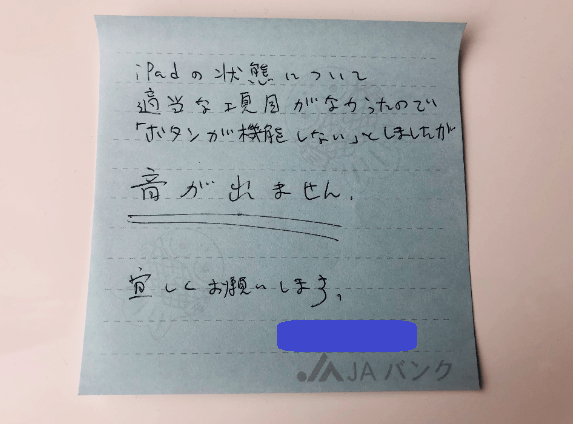 iPadの状態について
適当な項目がなかったので
「ボタンが機能しない」としましたが
音が出ません.
宜しくお願いします。
JAバンク